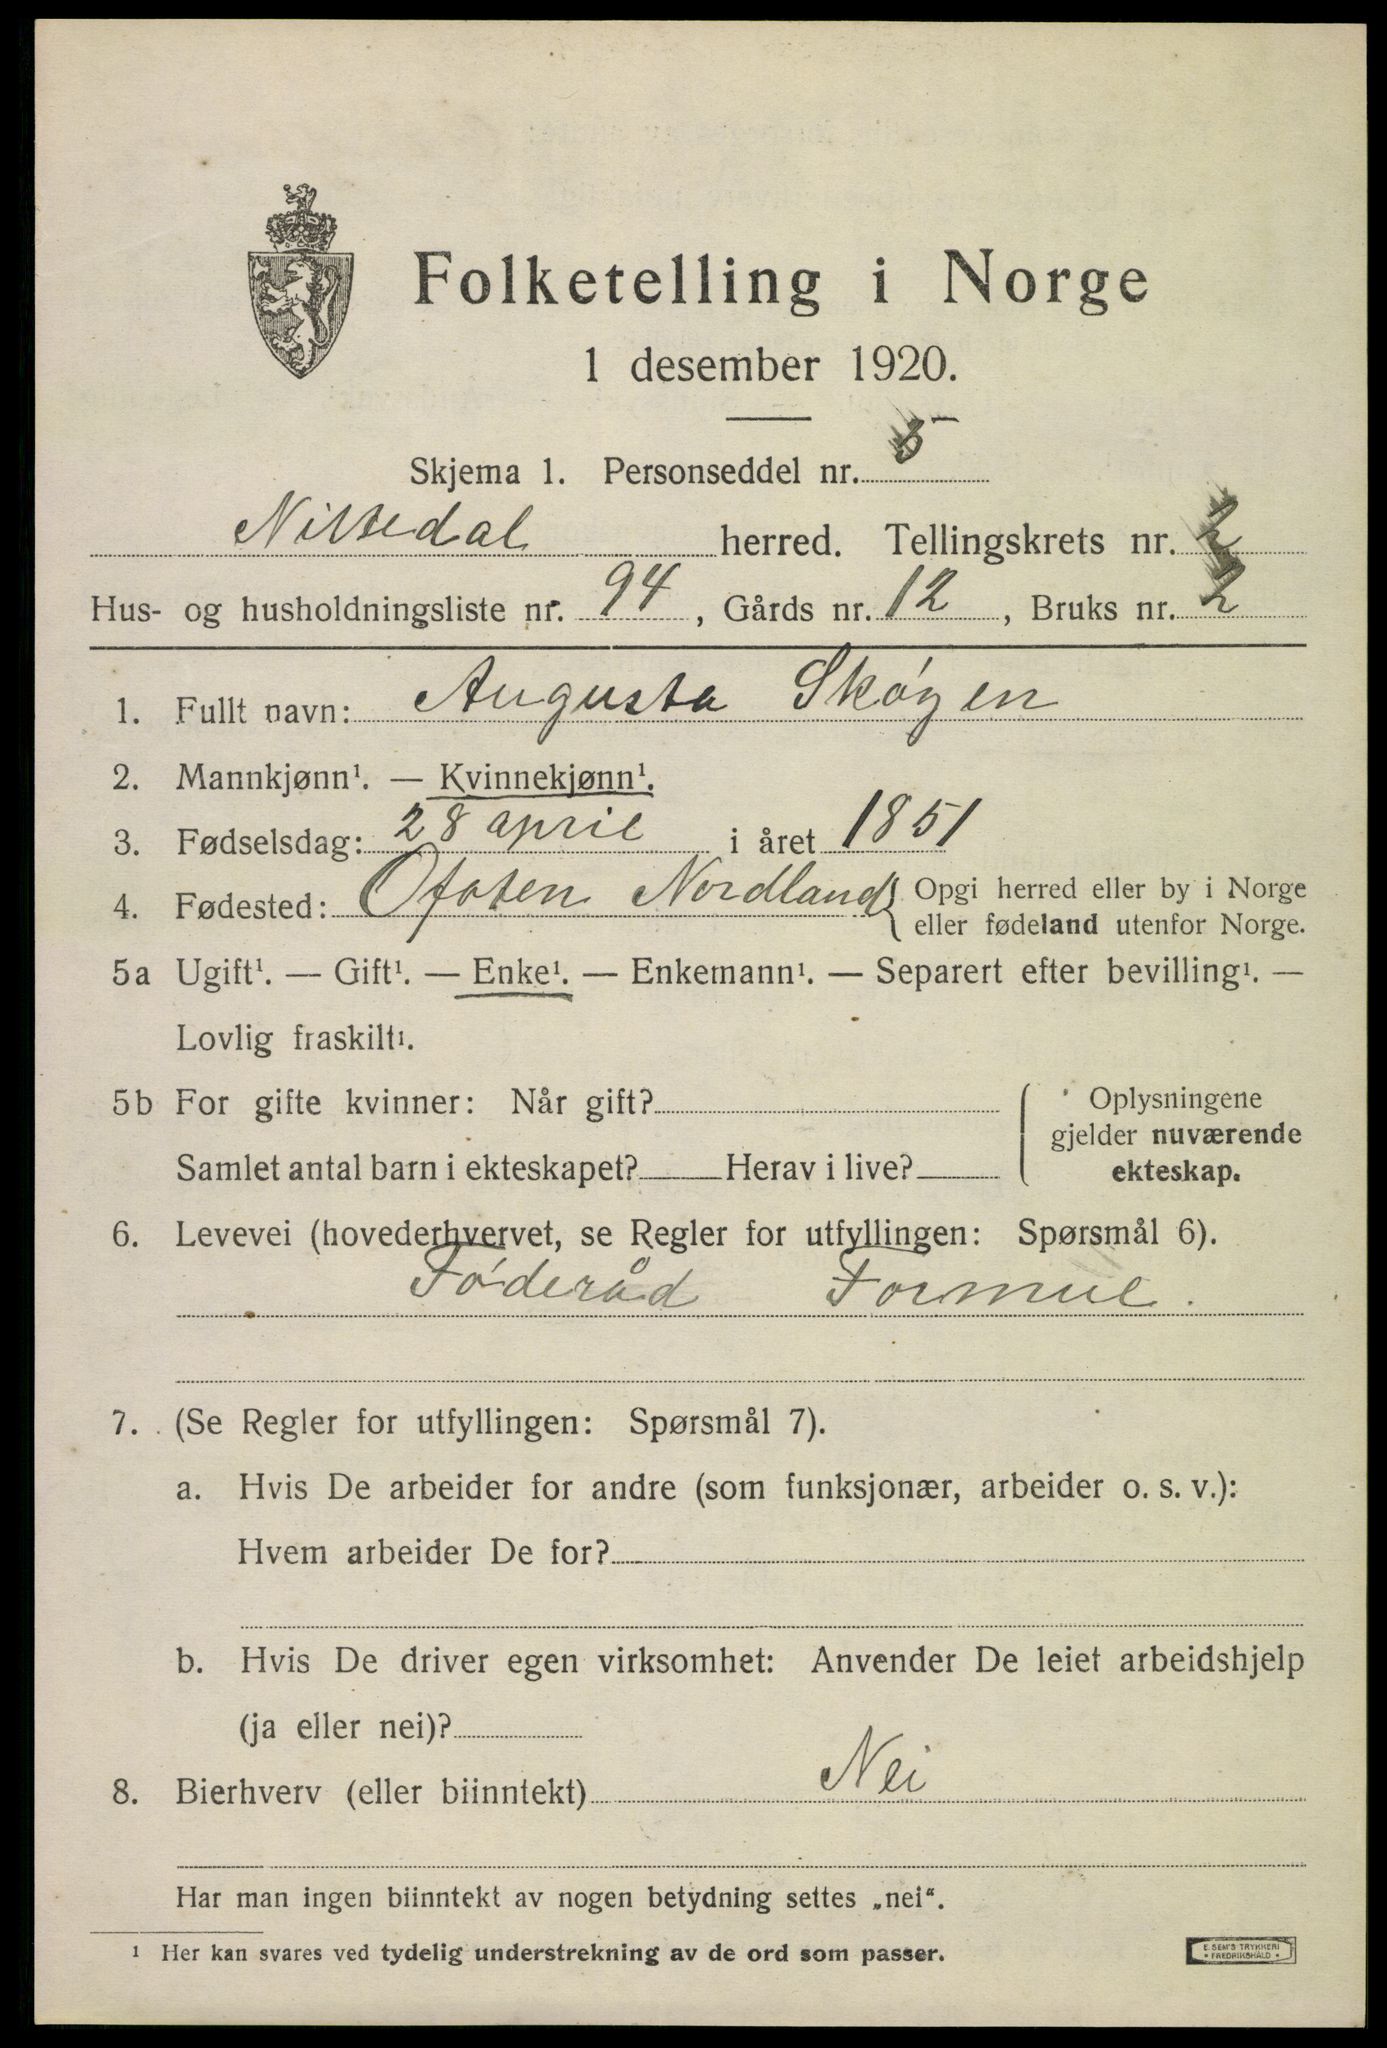 Folketelling i Norge
1 desember 1920.
Skjema 1. Personseddel nr. 5
Nissedal herred. Tellingskrets nr. 2
Hus- og husholdningsliste nr. 94, Gårds nr. 12, Bruks nr. 2
1. Fullt navn: Augusta Skógen
2. Mannkjønn¹. — Kvinnekjønn¹.
3. Fødselsdag: 28 april i året 1851
4. Fødested: Ofoten Nordland { Opgi herred eller by i Norge
eller fødeland utenfor Norge.
5a Ugift¹. — Gift¹. — Enke¹. — Enkemann¹. — Separert efter bevilling¹. —
Lovlig fraskilt¹.
5b For gifte kvinner: Når gift?
Samlet antal barn i ekteskapet? Herav i live?
Oplysningene
gjelder nuværende
ekteskap.
6. Levevei (hovederhvervet, se Regler for utfyllingen: Spørsmål 6).
Føderåd Formue.
7. (Se Regler for utfyllingen: Spørsmål 7).
a. Hvis De arbeider for andre (som funksjonær, arbeider o. s. v.):
Hvem arbeider De for?
b. Hvis De driver egen virksomhet: Anvender De leiet arbeidshjelp
(ja eller nei)?
8. Bierhverv (eller biinntekt) Nei
Har man ingen biinntekt av nogen betydning settes „nei“.
¹ Her kan svares ved tydelig understrekning av de ord som passer.
E. SEM'S TRYKKERI
• FREDRIKSHALD •